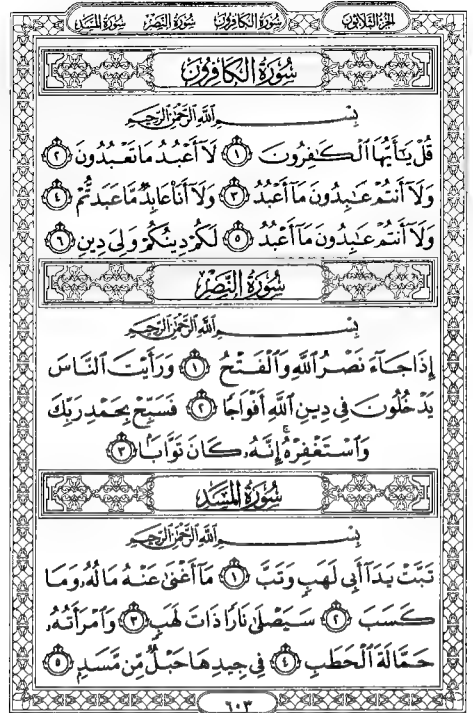 سُورَةُ الكَافِرُونَ سُورَةُ النَّصْرِ سُورَةُ المَسَدِ
الجُزْءُ الثَّلَاثُونَ
سُورَةُ الكَافِرُونَ
بِسْمِ ٱللَّهِ ٱلرَّحْمَٰنِ ٱلرَّحِيمِ
قُلْ يَٰٓأَيُّهَا ٱلْكَٰفِرُونَ ١ لَآ أَعْبُدُ مَا تَعْبُدُونَ ٢
وَلَآ أَنتُمْ عَٰبِدُونَ مَآ أَعْبُدُ ٣ وَلَآ أَنَا۠ عَابِدٌ مَّا عَبَدتُّمْ ٤
وَلَآ أَنتُمْ عَٰبِدُونَ مَآ أَعْبُدُ ٥ لَكُمْ دِينُكُمْ وَلِىَ دِينِ ٦
سُورَةُ النَّصْرِ
بِسْمِ ٱللَّهِ ٱلرَّحْمَٰنِ ٱلرَّحِيمِ
إِذَا جَآءَ نَصْرُ ٱللَّهِ وَٱلْفَتْحُ ١ وَرَأَيْتَ ٱلنَّاسَ
يَدْخُلُونَ فِى دِينِ ٱللَّهِ أَفْوَاجًا ٢ فَسَبِّحْ بِحَمْدِ رَبِّكَ
وَٱسْتَغْفِرْهُ ۚ إِنَّهُۥ كَانَ تَوَّابًۢا ٣
سُورَةُ المَسَدِ
بِسْمِ ٱللَّهِ ٱلرَّحْمَٰنِ ٱلرَّحِيمِ
تَبَّتْ يَدَآ أَبِى لَهَبٍ وَتَبَّ ١ مَآ أَغْنَىٰ عَنْهُ مَالُهُۥ وَمَا
كَسَبَ ٢ سَيَصْلَىٰ نَارًا ذَاتَ لَهَبٍ ٣ وَٱمْرَأَتُهُۥ
حَمَّالَةَ ٱلْحَطَبِ ٤ فِى جِيدِهَا حَبْلٌ مِّن مَّسَدٍۭ ٥
٦٠٣